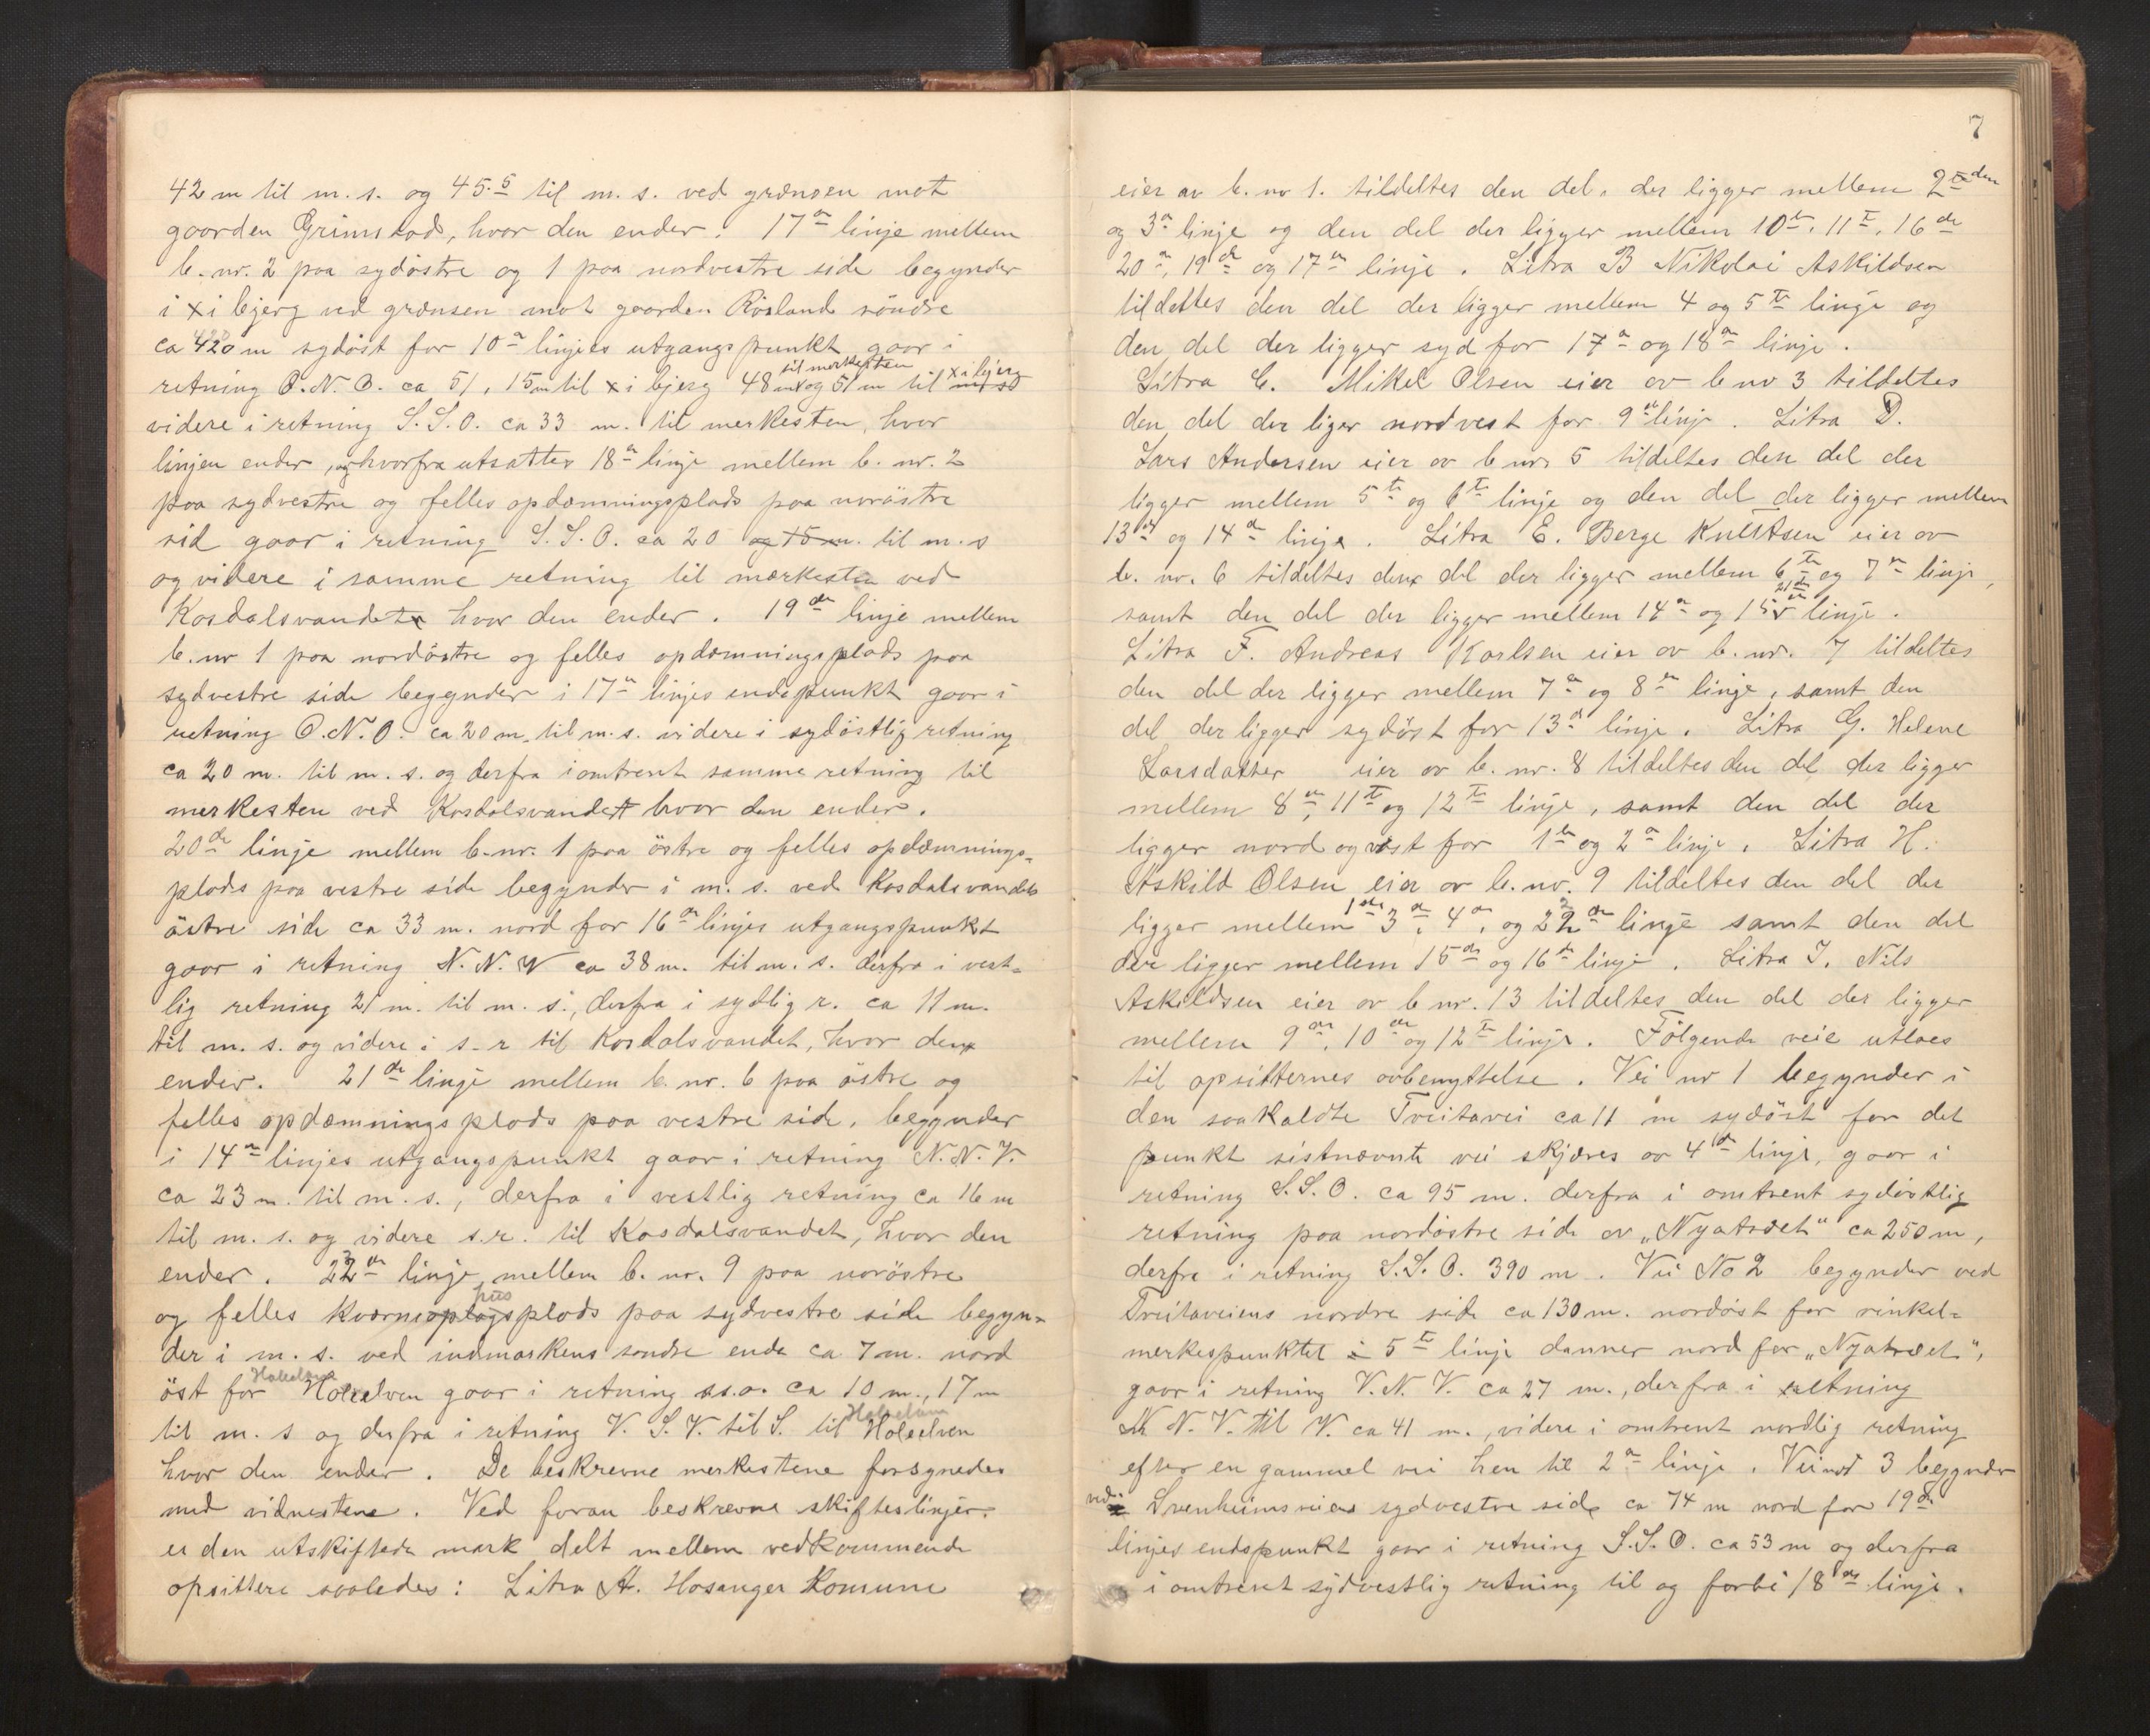 42 m til m. s. og 45.5 til m. s. ved grænsen mot
gaarden Grimstad, hvor den ender. 17de linje mellem
b. nr. 2 paa sydöstre og 1 paa nordvestre side begynder
i x i bjerg ved grænsen mot gaarden Rösland söndre
ca 420 m sydöst for 10de linjes utgangspunkt gaar i
retning O. N. O. ca 51, 15 m til x i bjerg 48 m til merkesten og 51 m til x i bjerg
videre i retning S. S. O. ca 33 m. til merkesten, hvor
linjen ender, og hvorfra utsattes 18de linje mellem b. nr. 2
paa sydvestre og felles opdæmningsplads paa noröstre
sid gaar i retning S. S. O. ca 20 og 15 m. til m. s
og videre i samme retning til mærkesten ved
Kosdalsvandet hvor den ender. 19de linje mellem
b. nr 1 paa nordöstre og felles opdæmningsplads paa
sydvestre side begynder i 17de linjes endepunkt gaar i
retning O. N. O. ca 20 m. til m. s. videre i sydöstlig retning
ca 20 m. til m. s. og derfra i omtrent samme retning til
merkesten ved Kosdalsvandet hvor den ender.
20de linje mellem b. nr. 1 paa östre og felles opdæmnings-
plads paa vestre side begynder i m. s. ved Kosdalsvandets
östre side ca 33 m. nord for 16de linjes utgangspunkt
gaar i retning N. N. V ca 38 m. til m. s. derfra i vest-
lig retning 21 m. til m. s., derfra i sydlig r. ca 11 m.
til m. s. og videre i s. r til Kosdalsvandet, hvor den
ender. 21de linje mellem b. nr. 6 paa östre og
felles opdæmningsplads paa vestre side, begynder
i 14de linjes utgangspunkt gaar i retning N. N. V.
ca 23 m. til m. s., derfra i vestlig retning ca 16 m
til m. s. og videre s. r. til Kosdalsvandet, hvor den
ender. 22de linje mellem b. nr. 9 paa noröstre
og felles kværnhusplads paa sydvestre side begyn-
der i m. s. ved indmarkens söndre ende ca 7 m. nord
öst for Holeelven gaar i retning s.s.o. ca 10 m., 17 m
til m. s og derfra i retning V. S. V. til S. til Holeelven
hvor den ender. De beskrevne merkestene forsynedes
med vidnestene. Ved foran beskrevne skifteslinjer
er den utskiftede mark delt mellem vedkommende
opsittere saaledes: Litra A. Hosanger Komune
7
eier av b. nr 1. tildeltes den del, der ligger mellem 2den
og 3de linje og den del der ligger mellem 10de, 11te, 16de
20de, 19de og 17de linje. Litra B Nikolai Askildsen
tildeltes den del der ligger mellem 4 og 5te linje og
den del der ligger syd for 17de og 18de linje.
Litra C. Mikel Olsen eier av b nr 3 tildeltes
den del der liger nordvest for 9de linje. Litra D.
Lars Andersen eier av b nr 5 tildeltes den del der
ligger mellem 5te og 6te linje og den del der ligger mellem
13de og 14de linje. Litra E. Berge Knutsen eier av
b. nr. 6 tildeltes den del der ligger mellem 6te og 7de linje,
samt den del der ligger mellem 14de og 15de 21de linje.
Litra F. Andreas Karlsen eier av b. nr. 7 tildeltes
den del der ligger mellem 7de og 8de linje, samt den
del der ligger sydöst for 13de linje. Litra G. Helene
Larsdatter eier av b. nr. 8 tildeltes den del der ligger
mellem 8de, 11te og 12te linje, samt den del der
ligger nord og vest for 1ste og 2de linje. Litra H.
Askild Olsen eier av b. nr. 9 tildeltes den del der
ligger mellem 1ste 3de, 4de, og 22de linje samt den del
der ligger mellem 15de og 16de linje. Litra I. Nils
Askildsen eier av b nr. 13 tildeltes den del der ligger
mellem 9de, 10de og 12te linje. Fölgende veie utlaes
til opsitternes avbenyttelse. Vei nr 1 begynder i
den saakaldte Treitavei ca 11 m sydöst for det
punkt sistnævnte vei skjæres av 4de linje, gaar i
retning S. S. O. ca 95 m. derfra i omtrent sydöstlig
retning paa nordöstre side av „Nyatræet" ca 250 m,
derfra i retning S. S. O. 390 m. Vei No 2 begynder ved
Treitaveiens nordre side ca 130 m. nordöst for vinkel-
merkespunktet 5te linje danner nord for „Nyatræet",
gaar i retning V. N. V. ca 27 m., derfra i retning
N. N. V. til V. ca 41 m., videre i omtrent nordlig retning
efter en gammel vei hen til 2de linje. Vei nr 3 begynder
ved Svenheimsveiens sydvestre side ca 74 m nord for 19de
linjes endepunkt gaar i retning S. S. O. ca 53 m og derfra
i omtrent sydvestlig retning til og forbi 18de linje.